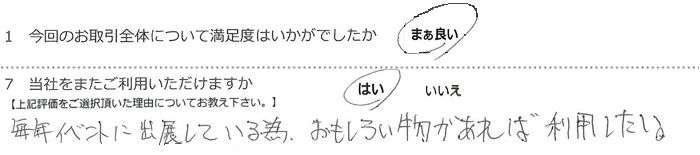 1 今回のお取引全体について満足度はいかがでしたか まぁ良い
7 当社をまたご利用いただけますか はい いいえ
【上記評価をご選択頂いた理由についてお教え下さい。】
毎年イベントに出展している為、おもしろい物があれば利用したい。